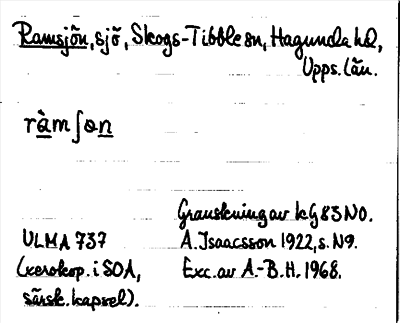 Ramsjön, sjö, Skogs-Tibble sn, Hagunda hd,
Upps. län.
ràmʃɵn
Granskning av kG 83 NO.
ULMA 737 A. Isaacsson 1922, s. 119.
(xerokop. i SOA, Exc. av A.-B. H. 1968.
särsk. kapsel).